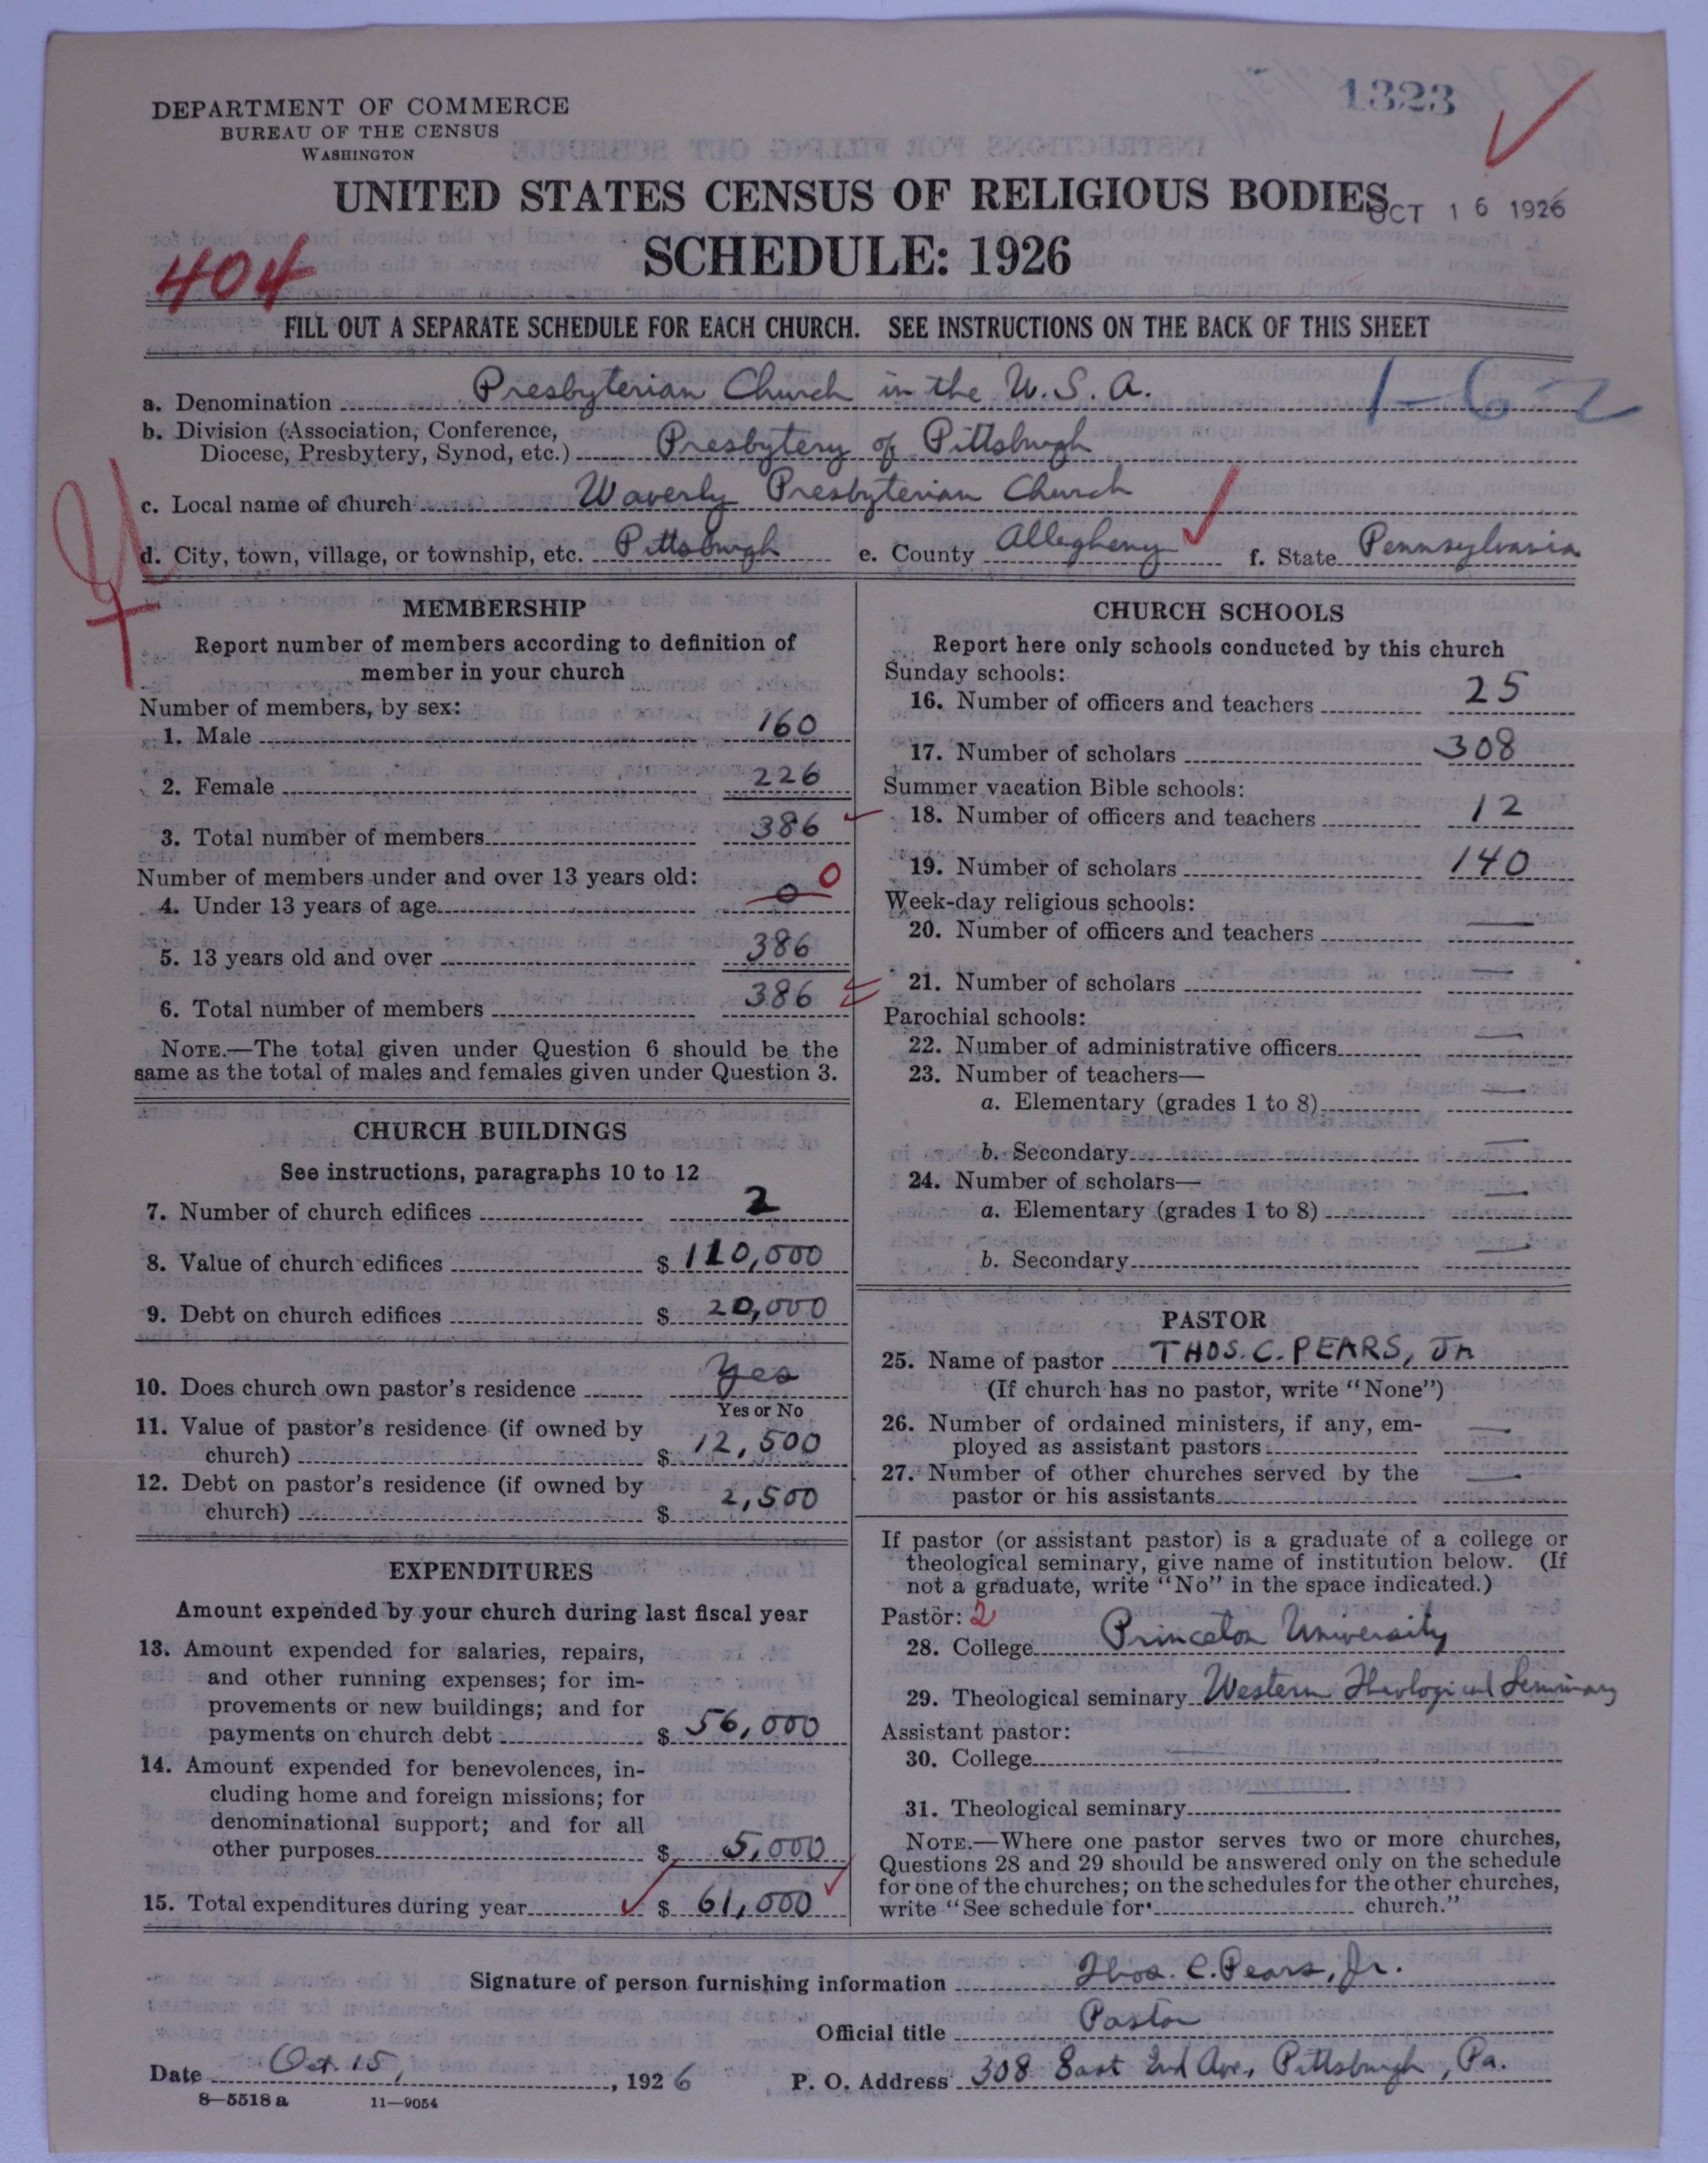 1323
DEPARTMENT OF COMMERCE
BUREAU OF THE CENSUS
WASHINGTON
UNITED STATES CENSUS OF RELIGIOUS BODIES
OCT 16 1926
SCHEDULE: 1926
404
FILL OUT A SEPARATE SCHEDULE FOR EACH CHURCH. SEE INSTRUCTIONS ON THE BACK OF THIS SHEET
a. Denomination Presbyterian Church in the U.S.A. 1-6-2
b. Division (Association, Conference,
Diocese, Presbytery, Synod, etc.) Presbytery of Pittsburgh
c. Local name of church Waverly Presbyterian Church
d. City, town, village, or township, etc. Pittsburgh e. County Allegheny f. State Pennsylvania
MEMBERSHIP
Report number of members according to definition of
member in your church
Number of members, by sex:
1. Male 160
2. Female 226
3. Total number of members 386
Number of members under and over 13 years old:
4. Under 13 years of age 0 0
5. 13 years old and over 386
6. Total number of members 386
NOTE.—The total given under Question 6 should be the
same as the total of males and females given under Question 3.
CHURCH BUILDINGS
See instructions, paragraphs 10 to 12
7. Number of church edifices 2
8. Value of church edifices $ 110,000
9. Debt on church edifices $ 20,000
10. Does church own pastor's residence Yes
Yes or No
11. Value of pastor's residence (if owned by
church) $ 12,500
12. Debt on pastor's residence (if owned by
church) $ 2,500
EXPENDITURES
Amount expended by your church during last fiscal year
13. Amount expended for salaries, repairs,
and other running expenses; for im-
provements or new buildings; and for
payments on church debt $ 56,000
14. Amount expended for benevolences, in-
cluding home and foreign missions; for
denominational support; and for all
other purposes $ 5,000
15. Total expenditures during year $ 61,000
CHURCH SCHOOLS
Report here only schools conducted by this church
Sunday schools:
16. Number of officers and teachers 25
17. Number of scholars 308
Summer vacation Bible schools:
18. Number of officers and teachers 12
19. Number of scholars 140
Week-day religious schools:
20. Number of officers and teachers —
21. Number of scholars —
Parochial schools:
22. Number of administrative officers —
23. Number of teachers—
a. Elementary (grades 1 to 8) —
b. Secondary —
24. Number of scholars—
a. Elementary (grades 1 to 8) —
b. Secondary —
PASTOR
25. Name of pastor THOS. C. PEARS, Jr
(If church has no pastor, write "None")
26. Number of ordained ministers, if any, em-
ployed as assistant pastors —
27. Number of other churches served by the
pastor or his assistants —
If pastor (or assistant pastor) is a graduate of a college or
theological seminary, give name of institution below. (If
not a graduate, write "No" in the space indicated.)
Pastor: 2
28. College Princeton University
29. Theological seminary Western Theological Seminary
Assistant pastor:
30. College —
31. Theological seminary —
NOTE.—Where one pastor serves two or more churches,
Questions 28 and 29 should be answered only on the schedule
for one of the churches; on the schedules for the other churches,
write "See schedule for church."
Signature of person furnishing information Thos. C. Pears, Jr.
Official title Pastor
Date Oct. 15, 1926 P. O. Address 308 East 2nd Ave., Pittsburgh, Pa.
8—5518 a 11—9054